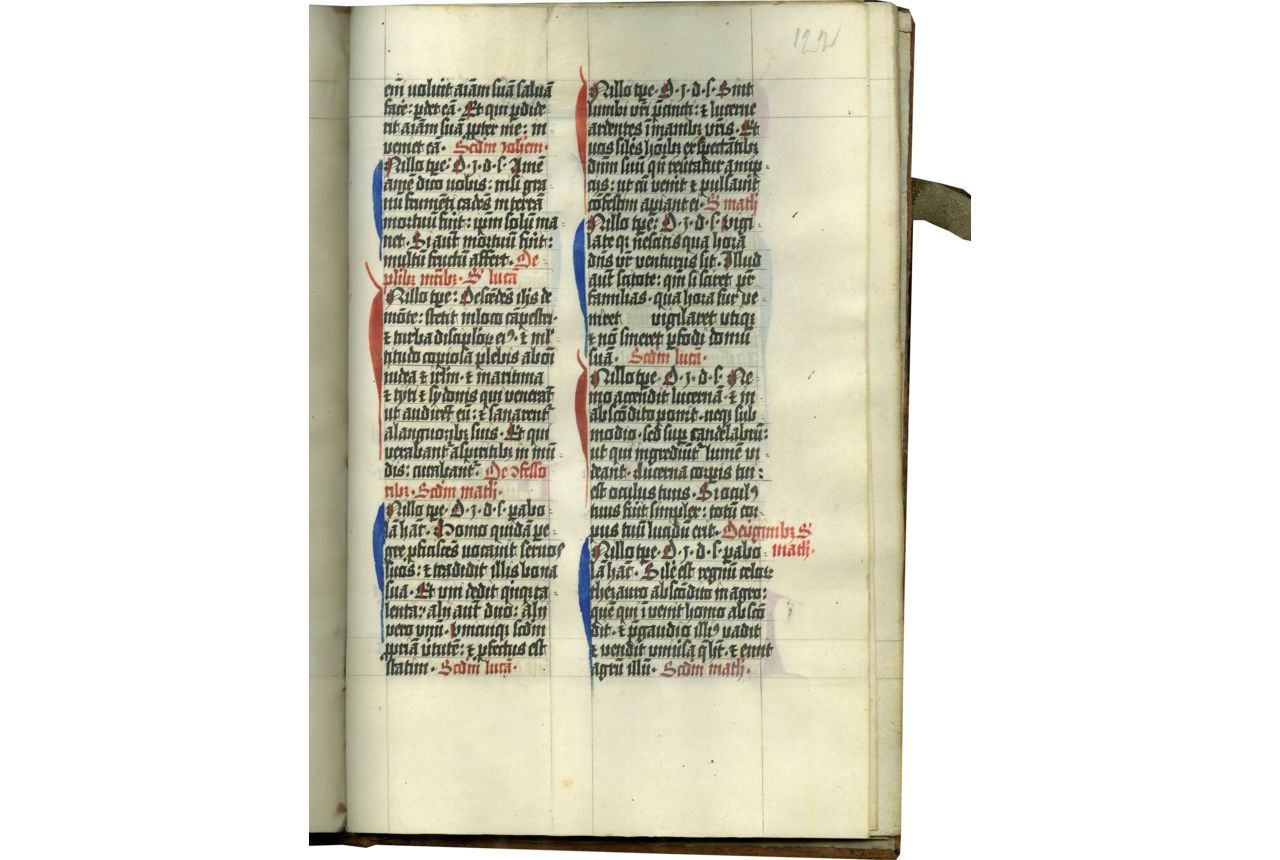 122
em̄ voluit aīam suā salvā
facē: ꝑdet eā. Et qui ꝑdide
rit aīam suā ꝓpter me: in
veniet eā. Scdm̄ Johēm.
In illo tꝑe. D. J. d. s. Amē
amē dico vobis: nisi gra
nū frumēti cadēs in terrā
mortuū fu̇it: ip̄m solū ma
net. Si aut̄ mortuū fu̇it:
multū fructū affert. De
plībꝫ mr̄ibꝫ. S. lucā
In illo tꝑe: Descēdēs ih̄s de
mōte: stetit in loco cāpestri.
⁊ turba discipl'oꝝ eiꝰ. ⁊ ml'
titudo copiosa plebis ab oī
iudea ⁊ irl̄m ⁊ maritima
⁊ tyri ⁊ sydonis qui venerāt
ut audirēt eū: ⁊ sanarent᷑
a languoribꝫ suis. Et qui
vexabant᷑ a sp̄iritibꝫ in mū
dis: curabant᷑. De ꝯfesso
ribꝫ. Scdm̄ math̄.
In illo tꝑe. D. J. d. s. ꝑabo
lā hāc. Homo quidā ꝑe
gre ꝓficiscēs vocavit servos
suos: ⁊ tradidit illis bona
sua. Et vni dedit qͥnqꝫ ta
lenta: alij aut̄ duo: alij
vero vnū. Vnicuiqꝫ scdm̄
ꝓpriā v̇tutē: ⁊ ꝓfectus est
statim. Scdm̄ lucā.
In illo tꝑe. D. J. d. s. Sint
lumbi vr̄i p̄cincti: ⁊ lucerne
ardentes ī manibꝫ vr̄is. Et
vos siles hoībꝫ exspectātibꝫ
dn̄m suū qn̄ revtatur a nup
ciis: ut cū venit ⁊ pulsav̇it
cōfestim aꝑiant ei. S. math̄
In illo tꝑe: D. J. d. s. Vigi
late qꝛ nescitis qua hora
dn̄s vr̄ venturus sit. Illud
aut̄ scitote: qm̄ si sciret pr̄
familias. qua hora fur ve
niret vigilaret vtiqꝫ
⁊ nō sineret ꝑfodi domū
suā. Scdm̄ lucā.
In illo tꝑe. D. J. d. s. Ne
mo accendit lucernā. ⁊ in
abscōdito ponit. neqꝫ sub
modio. sed sup̄ candelabrū:
ut qui ingrediūt᷑ lumē vi
deant. Lucerna corꝑis tui:
est oculus tuus. Si oculꝰ
tuus fu̇it simplex: totū cor
pus tuū lucidū erit. De v̇ginibꝫ S.
math̄.
In illo tꝑe. D. J. d. s. ꝑabo
lā hāc. Sil'e est regnū celoꝝ
thezauro abscōdito in agro:
quē qui īvenit homo abscō
dit. ⁊ p̄ gaudio illiꝰ vadit
⁊ vendit vniv̇sa q̄ hꝫ. ⁊ emit
agrū illū. Scdm̄ math̄.